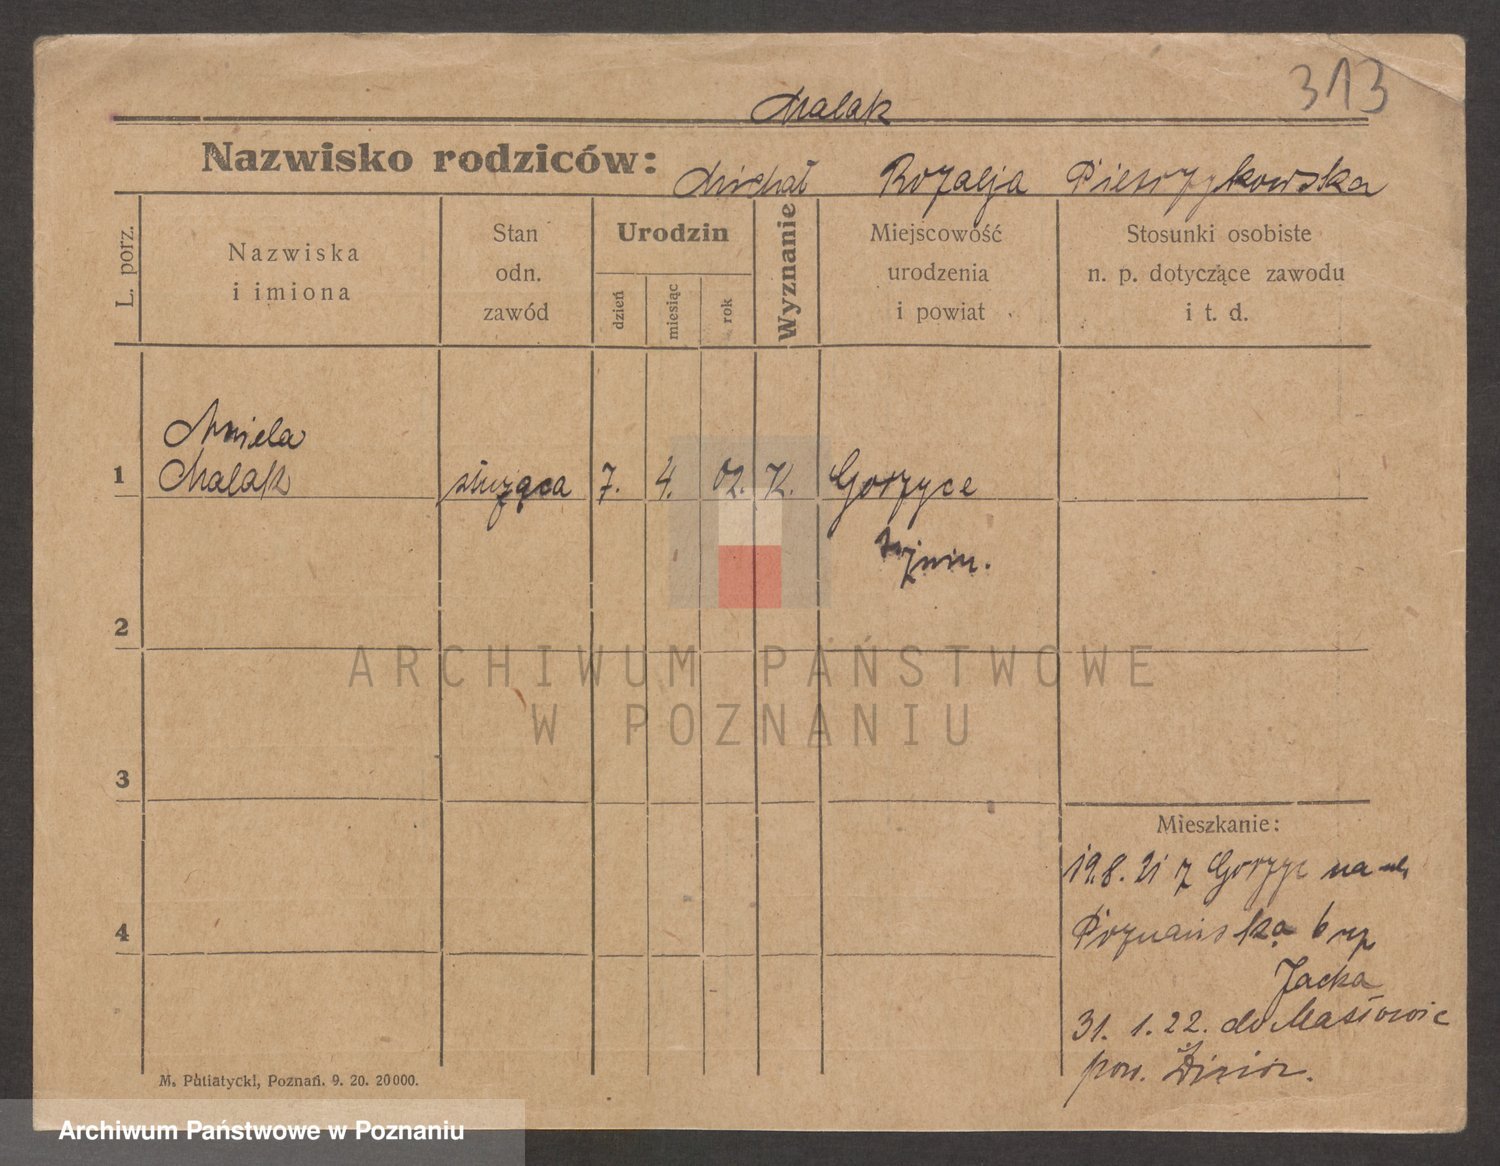 313
Malak
Nazwisko rodziców: Michał Rozalja Pietrzykowska
L. porz.
Nazwiska
i imiona
Stan
odn.
zawód
Urodzin
dzień
miesiąc
rok
Wyznanie
Miejscowość
urodzenia
i powiat
Stosunki osobiste
n. p. dotyczące zawodu
i t. d.
Aniela
1 Malak służąca 7. 4. 02. K. Gorzyce
Żnin.
2
ARCHIWUM PAŃSTWOWE
W POZNANIU
3
Mieszkanie:
19.8.21 z Gorzyc na ul.
4
Poznańska 6
Jacka
31. 1. 22. do Masłowic
pow.
M. Putiatycki, Poznań. 9. 20. 20000.
Archiwum Państwowe w Poznaniu